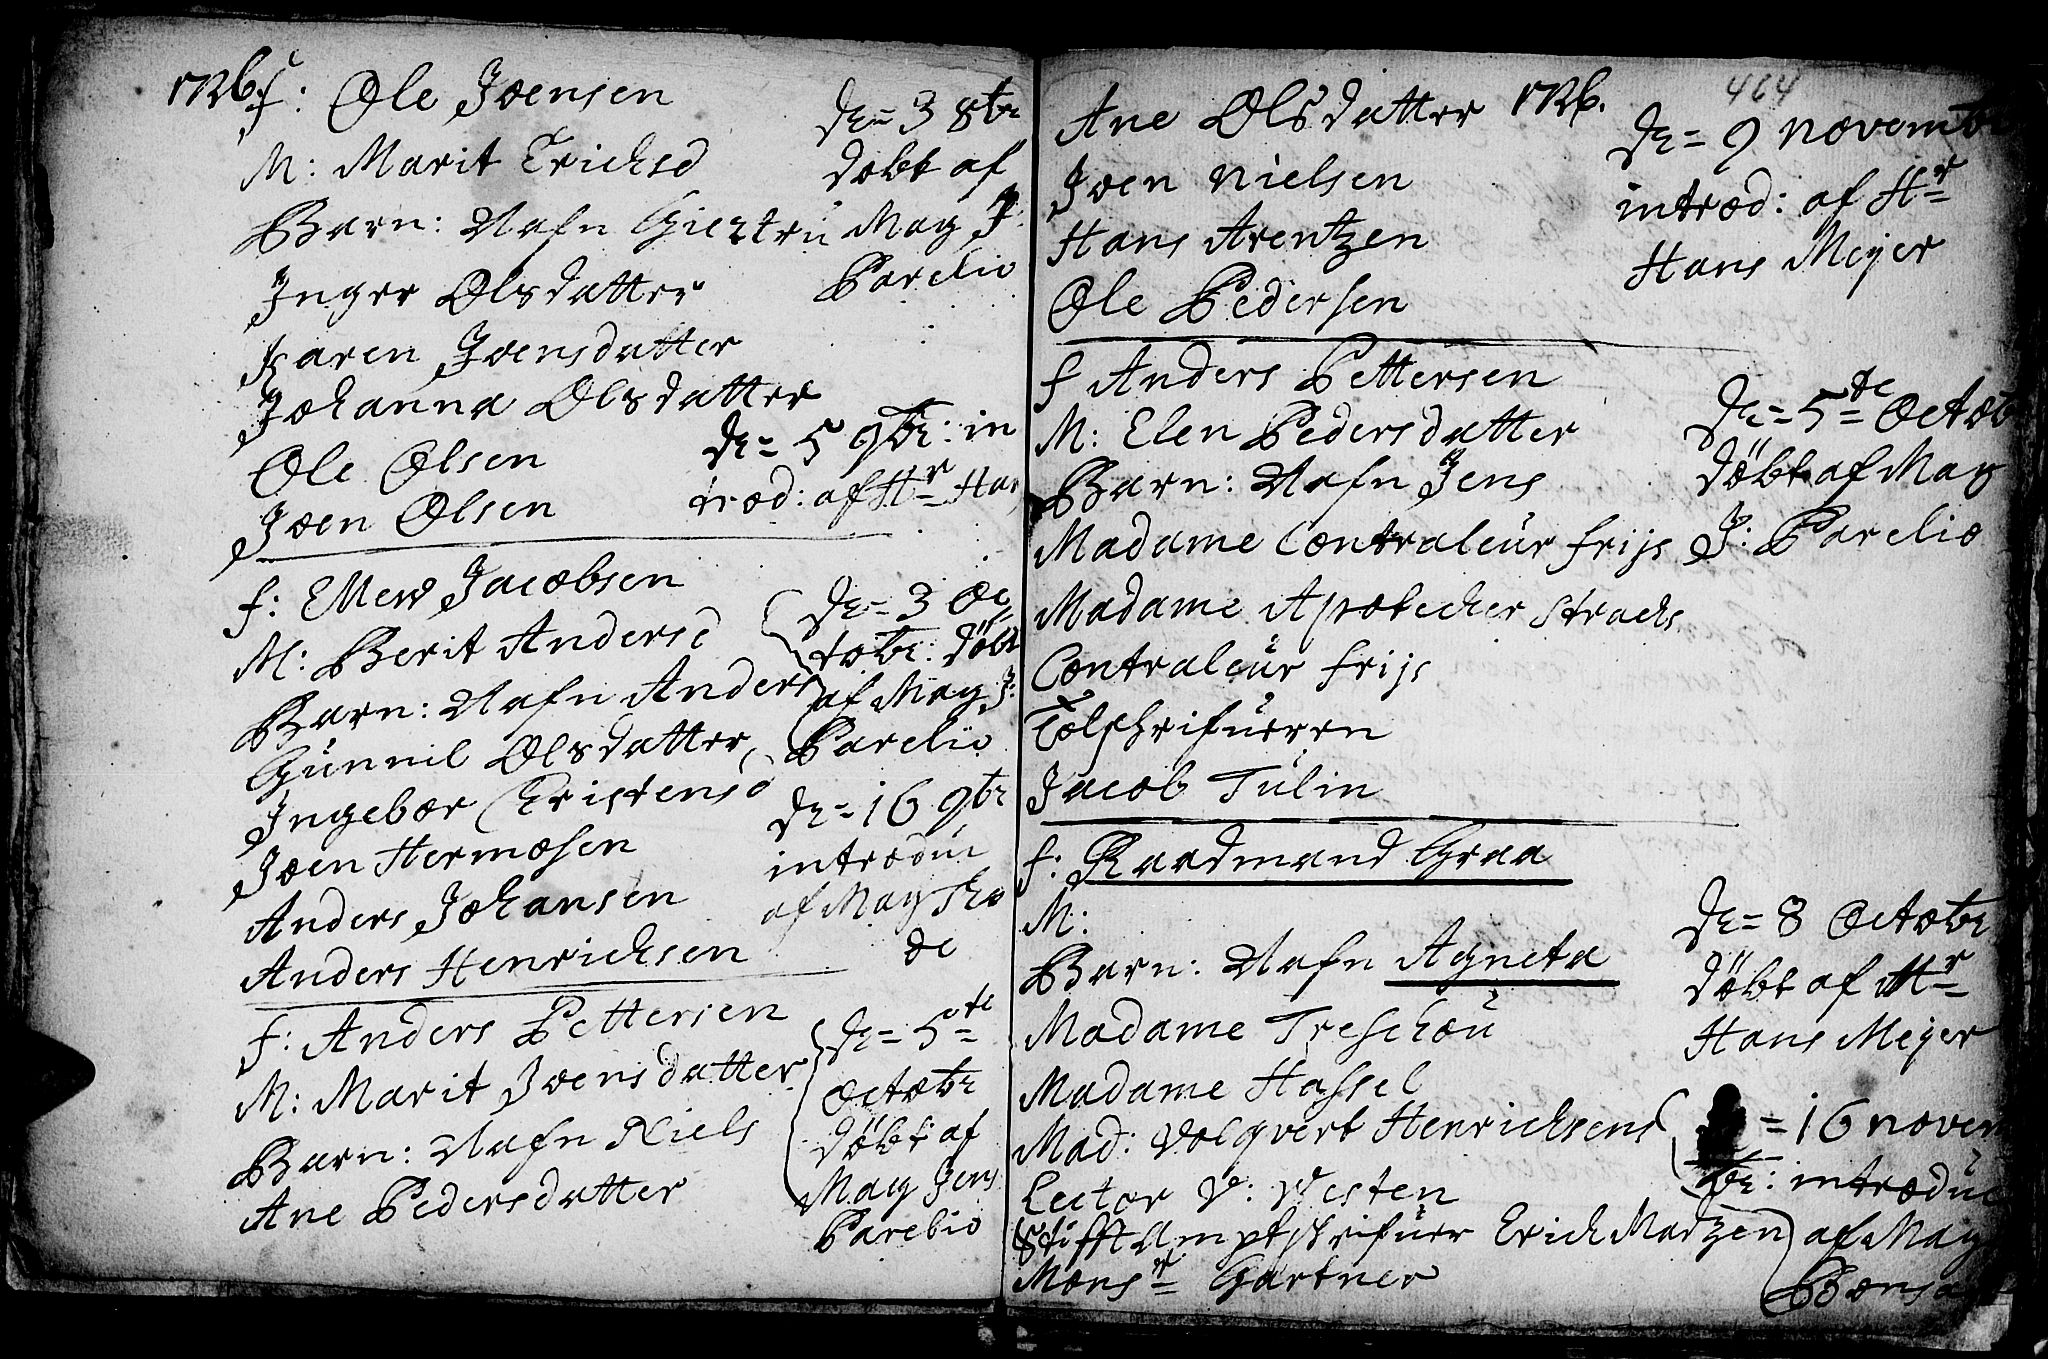 1726.
f: Ole Joensen
M: Marit Ericksd
Barn: Nafn Giertru
Inger Olsdatter
Karen Joensdatter
Johanna Olsdatter
Ole Olsen
Joen Olsen
d: = 3 8br
døbt af
Mag J:
Parelio
d: = 5 9br: in
trod: af Hr Han
f: Ellew Jacobsen
M: Berit Andersd
Barn: Nafn Anders
Gunnil Olsdatter
Ingebor Christensd
Joen Hermosen
Anders Johansen
Anders Henricksen
d: = 3 Oc
tobr: døbt
af Mag J:
Parelio
d: = 16 9br
introdu
af Mag Tho
de
f: Anders Pettersen
M: Marit Joensdatter
Barn: Nafn Niels
Ane Pedersdatter
d: = 5te
Octobr
døbt af
Mag Jens
Parelio
464
Ane Olsdatter 1726.
Joen Nielsen
Hans Arentzen
Ole Pedersen
d: = 9 novembr
introd: af Hr
Hans Meyer
f Anders Pettersen
M: Elen Pedersdatter
Barn: Nafn Jens
Madame Contraleur frijs
Madame Apotecker Strachs
Contraleur frijs
Tolschrifueren
Jacob Tulin
d: = 5te Octob
døbt af Mag
J: Parelio
f: Raadmand Graa
M:
Barn: Nafn Agneta
Madame Treschou
Madame Hassel
Mad: Volqvert Henricksens
Lector V: Westen
Stifft Amptskrifuer Erich Matzen
Monsr Gartner
d: = 8 Octobr
døbt af Hr
Hans Meyer
= 16 novem
br: introdue
af Mag